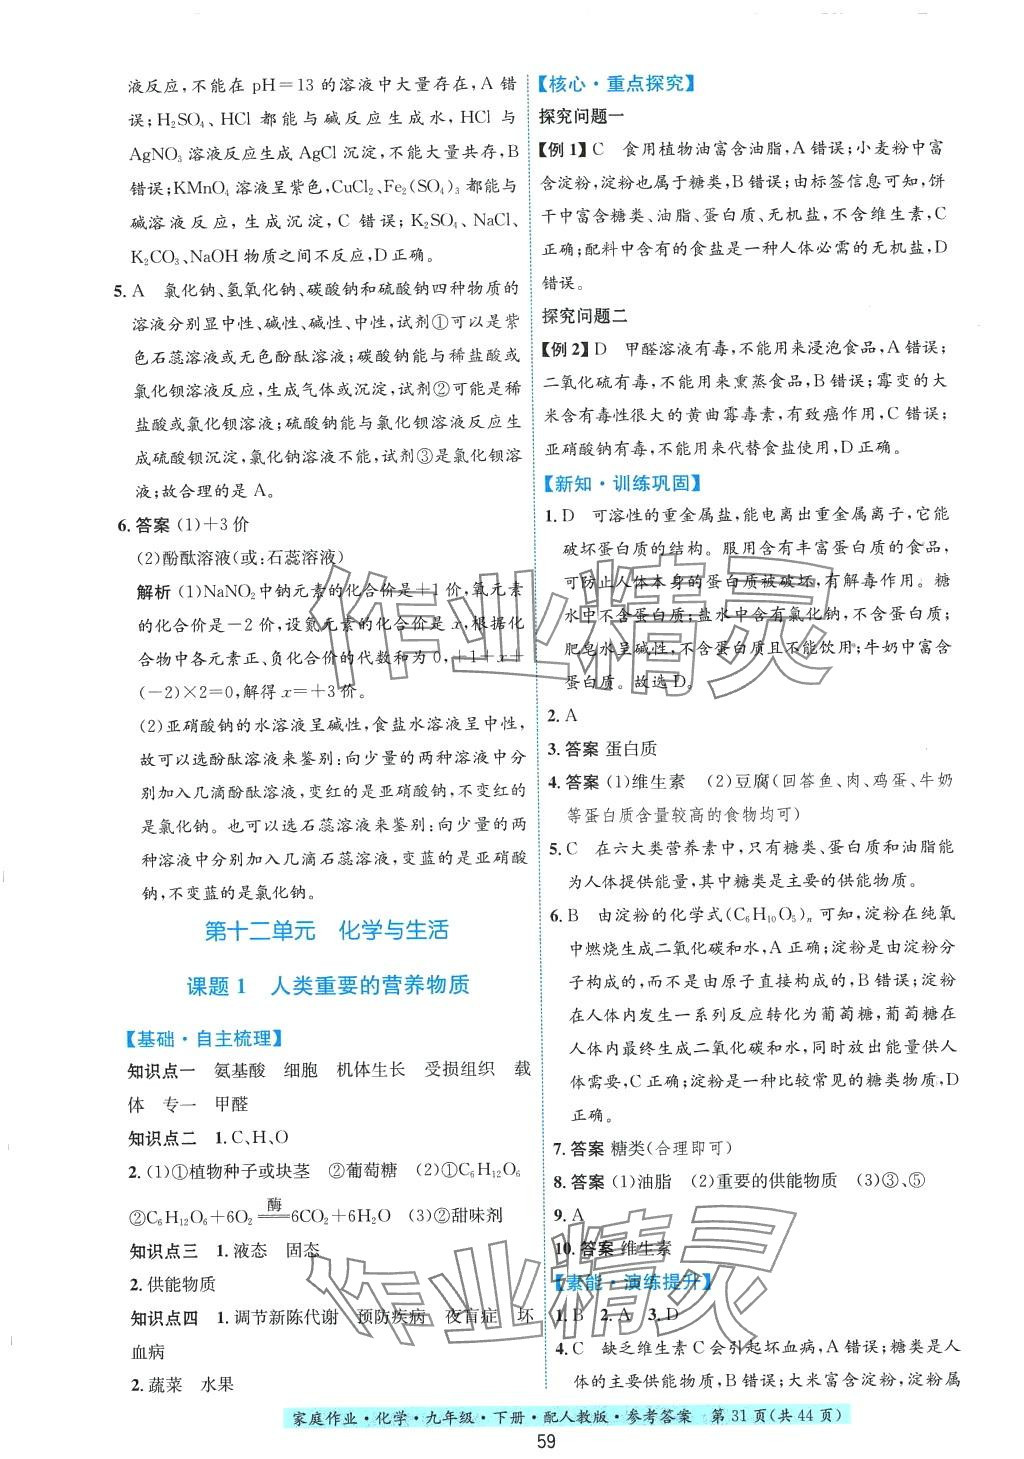 液反应，不能在 pH＝13 的溶液中大量存在，A 错
误；H₂SO₄、HCl 都能与碱反应生成水，HCl 与
AgNO₃ 溶液反应生成 AgCl 沉淀，不能大量共存，B
错误；KMnO₄ 溶液呈紫色，CuCl₂、Fe₂(SO₄)₃ 都能与
碱溶液反应，生成沉淀，C 错误；K₂SO₄、NaCl、
K₂CO₃、NaOH 物质之间不反应，D 正确。
5. A 氯化钠、氢氧化钠、碳酸钠和硫酸钠四种物质的
溶液分别显中性、碱性、碱性、中性，试剂①可以是紫
色石蕊溶液或无色酚酞溶液；碳酸钠能与稀盐酸或
氯化钡溶液反应，生成气体或沉淀，试剂②可能是稀
盐酸或氯化钡溶液；硫酸钠能与氯化钡溶液反应生
成硫酸钡沉淀，氯化钠溶液不能，试剂③是氯化钡溶
液；故合理的是 A。
6. 答案 (1)＋3 价
(2)酚酞溶液(或：石蕊溶液)
解析 (1)NaNO₂ 中钠元素的化合价是＋1 价，氧元素
的化合价是－2 价，设氮元素的化合价是 x，根据化
合物中各元素正、负化合价的代数和为 0，＋1＋x＋
(－2)×2＝0，解得 x＝＋3 价。
(2)亚硝酸钠的水溶液呈碱性，食盐水溶液呈中性，
故可以选酚酞溶液来鉴别：向少量的两种溶液中分
别加入几滴酚酞溶液，变红的是亚硝酸钠，不变红的
是氯化钠。也可以选石蕊溶液来鉴别：向少量的两
种溶液中分别加入几滴石蕊溶液，变蓝的是亚硝酸
钠，不变蓝的是氯化钠。
第十二单元 化学与生活
课题 1 人类重要的营养物质
【基础·自主梳理】
知识点一 氨基酸 细胞 机体生长 受损组织 载
体 专一 甲醛
知识点二 1. C、H、O
2. (1)①植物种子或块茎 ②葡萄糖 (2)①C₆H₁₂O₆
②C₆H₁₂O₆＋6O₂ ═酶═ 6CO₂＋6H₂O (3)②甜味剂
知识点三 1. 液态 固态
2. 供能物质
知识点四 1. 调节新陈代谢 预防疾病 夜盲症 坏
血病
2. 蔬菜 水果
【核心·重点探究】
探究问题一
【例 1】 C 食用植物油富含油脂，A 错误；小麦粉中富
含淀粉，淀粉也属于糖类，B 错误；由标签信息可知，饼
干中富含糖类、油脂、蛋白质、无机盐，不含维生素，C
正确；配料中含有的食盐是一种人体必需的无机盐，D
错误。
探究问题二
【例 2】 D 甲醛溶液有毒，不能用来浸泡食品，A 错误；
二氧化硫有毒，不能用来熏蒸食品，B 错误；霉变的大
米含有毒性很大的黄曲霉毒素，有致癌作用，C 错误；
亚硝酸钠有毒，不能用来代替食盐使用，D 正确。
【新知·训练巩固】
1. D 可溶性的重金属盐，能电离出重金属离子，它能
破坏蛋白质的结构。服用含有丰富蛋白质的食品，
可防止人体本身的蛋白质被破坏，有解毒作用。糖
水中不含蛋白质；盐水中含有氯化钠，不含蛋白质；
肥皂水呈碱性，不含蛋白质且不能饮用；牛奶中富含
蛋白质。故选 D。
2. A
3. 答案 蛋白质
4. 答案 (1)维生素 (2)豆腐(回答鱼、肉、鸡蛋、牛奶
等蛋白质含量较高的食物均可)
5. C 在六大类营养素中，只有糖类、蛋白质和油脂能
为人体提供能量，其中糖类是主要的供能物质。
6. B 由淀粉的化学式(C₆H₁₀O₅)ₙ 可知，淀粉在纯氧
中燃烧生成二氧化碳和水，A 正确；淀粉是由淀粉分
子构成的，而不是由原子直接构成的，B 错误；淀粉
在人体内发生一系列反应转化为葡萄糖，葡萄糖在
人体内最终生成二氧化碳和水，同时放出能量供人
体需要，C 正确；淀粉是一种比较常见的糖类物质，D
正确。
7. 答案 糖类(合理即可)
8. 答案 (1)油脂 (2)重要的供能物质 (3)③、⑤
9. A
10. 答案 维生素
【素能·演练提升】
1. B 2. A 3. D
4. C 缺乏维生素 C 会引起坏血病，A 错误；糖类是人
体的主要供能物质，B 错误；大米富含淀粉，淀粉属
作业精灵
作业精灵
家庭作业·化学·九年级·下册·配人教版·参考答案 第 31 页(共 44 页)
59